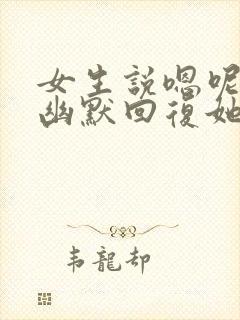 女生説嗯呢
幽默回復她
韦龍却